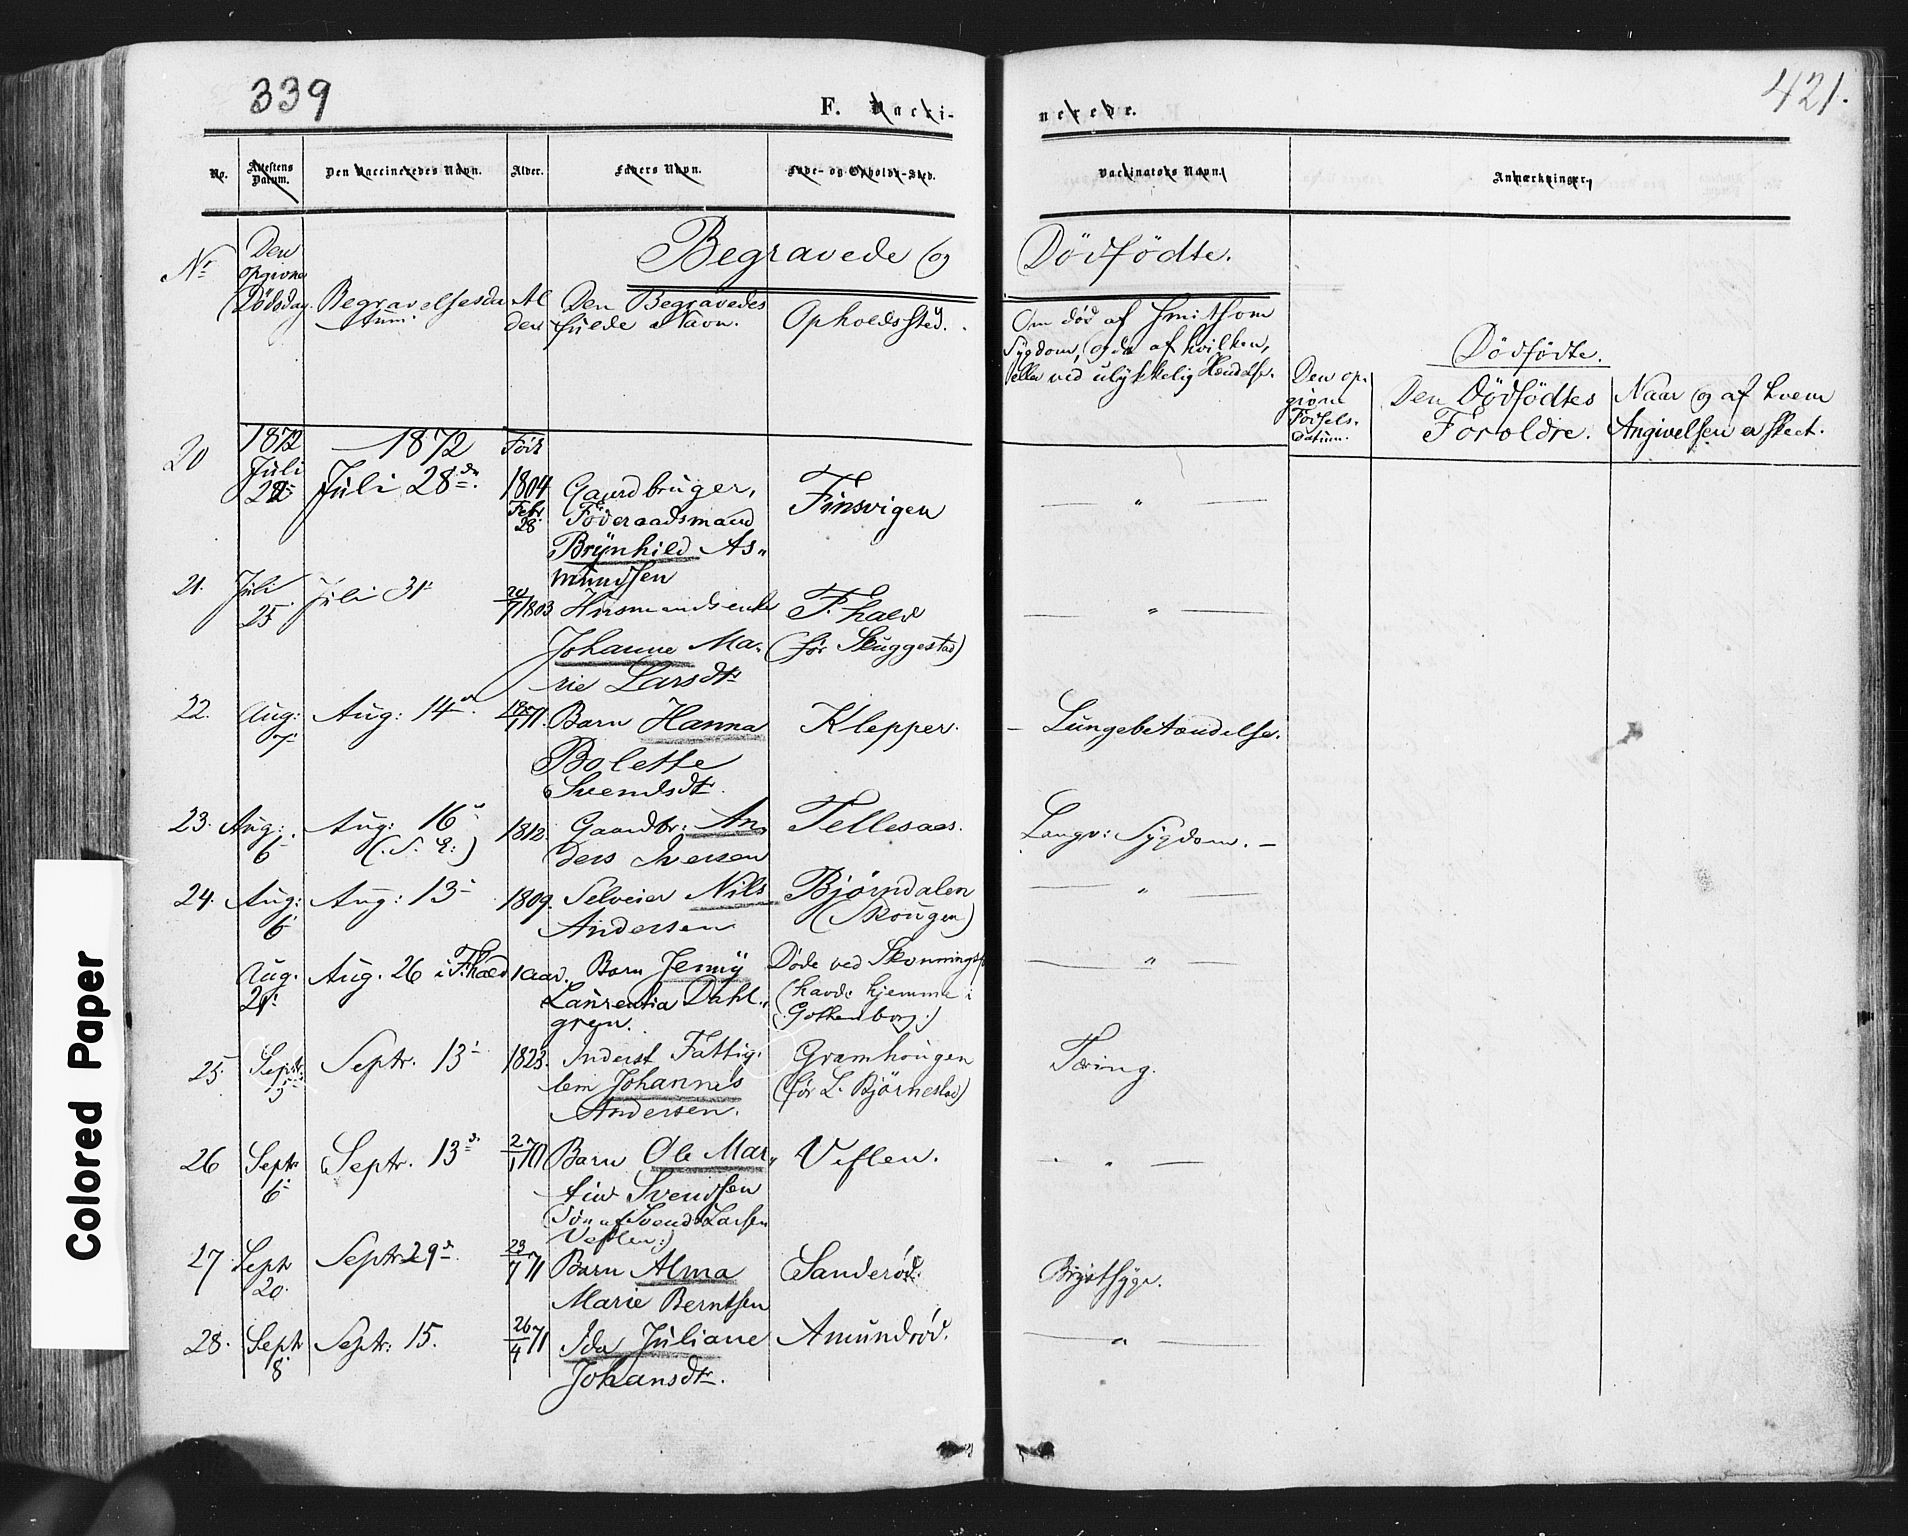 339
421.
F. Vacci-
nerede.
No.
Attestens Datum.
Den Vaccineredes Navn.
Alder.
Faders Navn.
Føde- og Opholds-Sted.
Vaccinators Navn.
Anmærkninger.
Begravede og Dödfödte.
Nr
Den
opgivne
Dödsdag.
Begravelsesda
tum.
Al
der
Den Begravedes
fulde Navn.
Opholdssted.
Om död af Smitsom
Sygdom, og da af hvilken,
eller ved ulykkelig Hændelse.
Dödfödte.
Den op-
givne
Födsels-
datum.
Den Dödfödtes
Forældre.
Naar og af hvem
Angivelsen er skeet.
1872
1872
Född
20
Juli
22
Juli 28de.
1804
Febr.
28
Gaardbruger,
Föderaadsmand
Brynhild As„
mundsen
Finsvigen
— „ —
21.
Juli
25
Juli 31
20/7 1803
Husmandsenke
Johanne Ma-
rie Larsdtr
F.hald
(før Skuggestad)
— „ —
22.
Aug:
7
Aug: 14de.
18/1 71.
Barn Hanna
Bolette
Svendsdtr.
Klepper.
– Lungebetændelse.
23.
Aug:
6
Aug: 16
(. S. E:)
1812.
Gaardbr: An„
ders Iversen
Tellesaas.
Langv: Sygdom. –
24.
Aug:
6
Aug: 13
1809.
Selveier Nils
Andersen
Bjørndalen
(Skougen)
— „ —
Aug.
21
Aug. 26 i F.hald
1 aar.
Barn Jenny
Laurentia Dahl„
gren.
Døde ved Skonningsfos
(havde hjemme i
Gothenborg.)
— „ —
25.
Septr
5
Septr. 13
1823.
Inderst Fattig-
lem Johannes
Andersen.
Gramhougen
(før L. Bjørnestad)
Tæring.
26
Septr
6
Septr. 13d.
2/1 70
Barn Ole Mar„
tin Svendsen
(Søn af Svend Larsen
Veflen:)
Veflen.
— „ —
27.
Septr
20.
Septr 29d.
23/7 71
Barn Alma
Marie Berntsen
Sanderød.
Brystsyge.
28.
Septr
8
Septr: 15.
26/4 71
Ida Juliane
Johansdtr.
Amundrød.
— „ —
Colored Paper